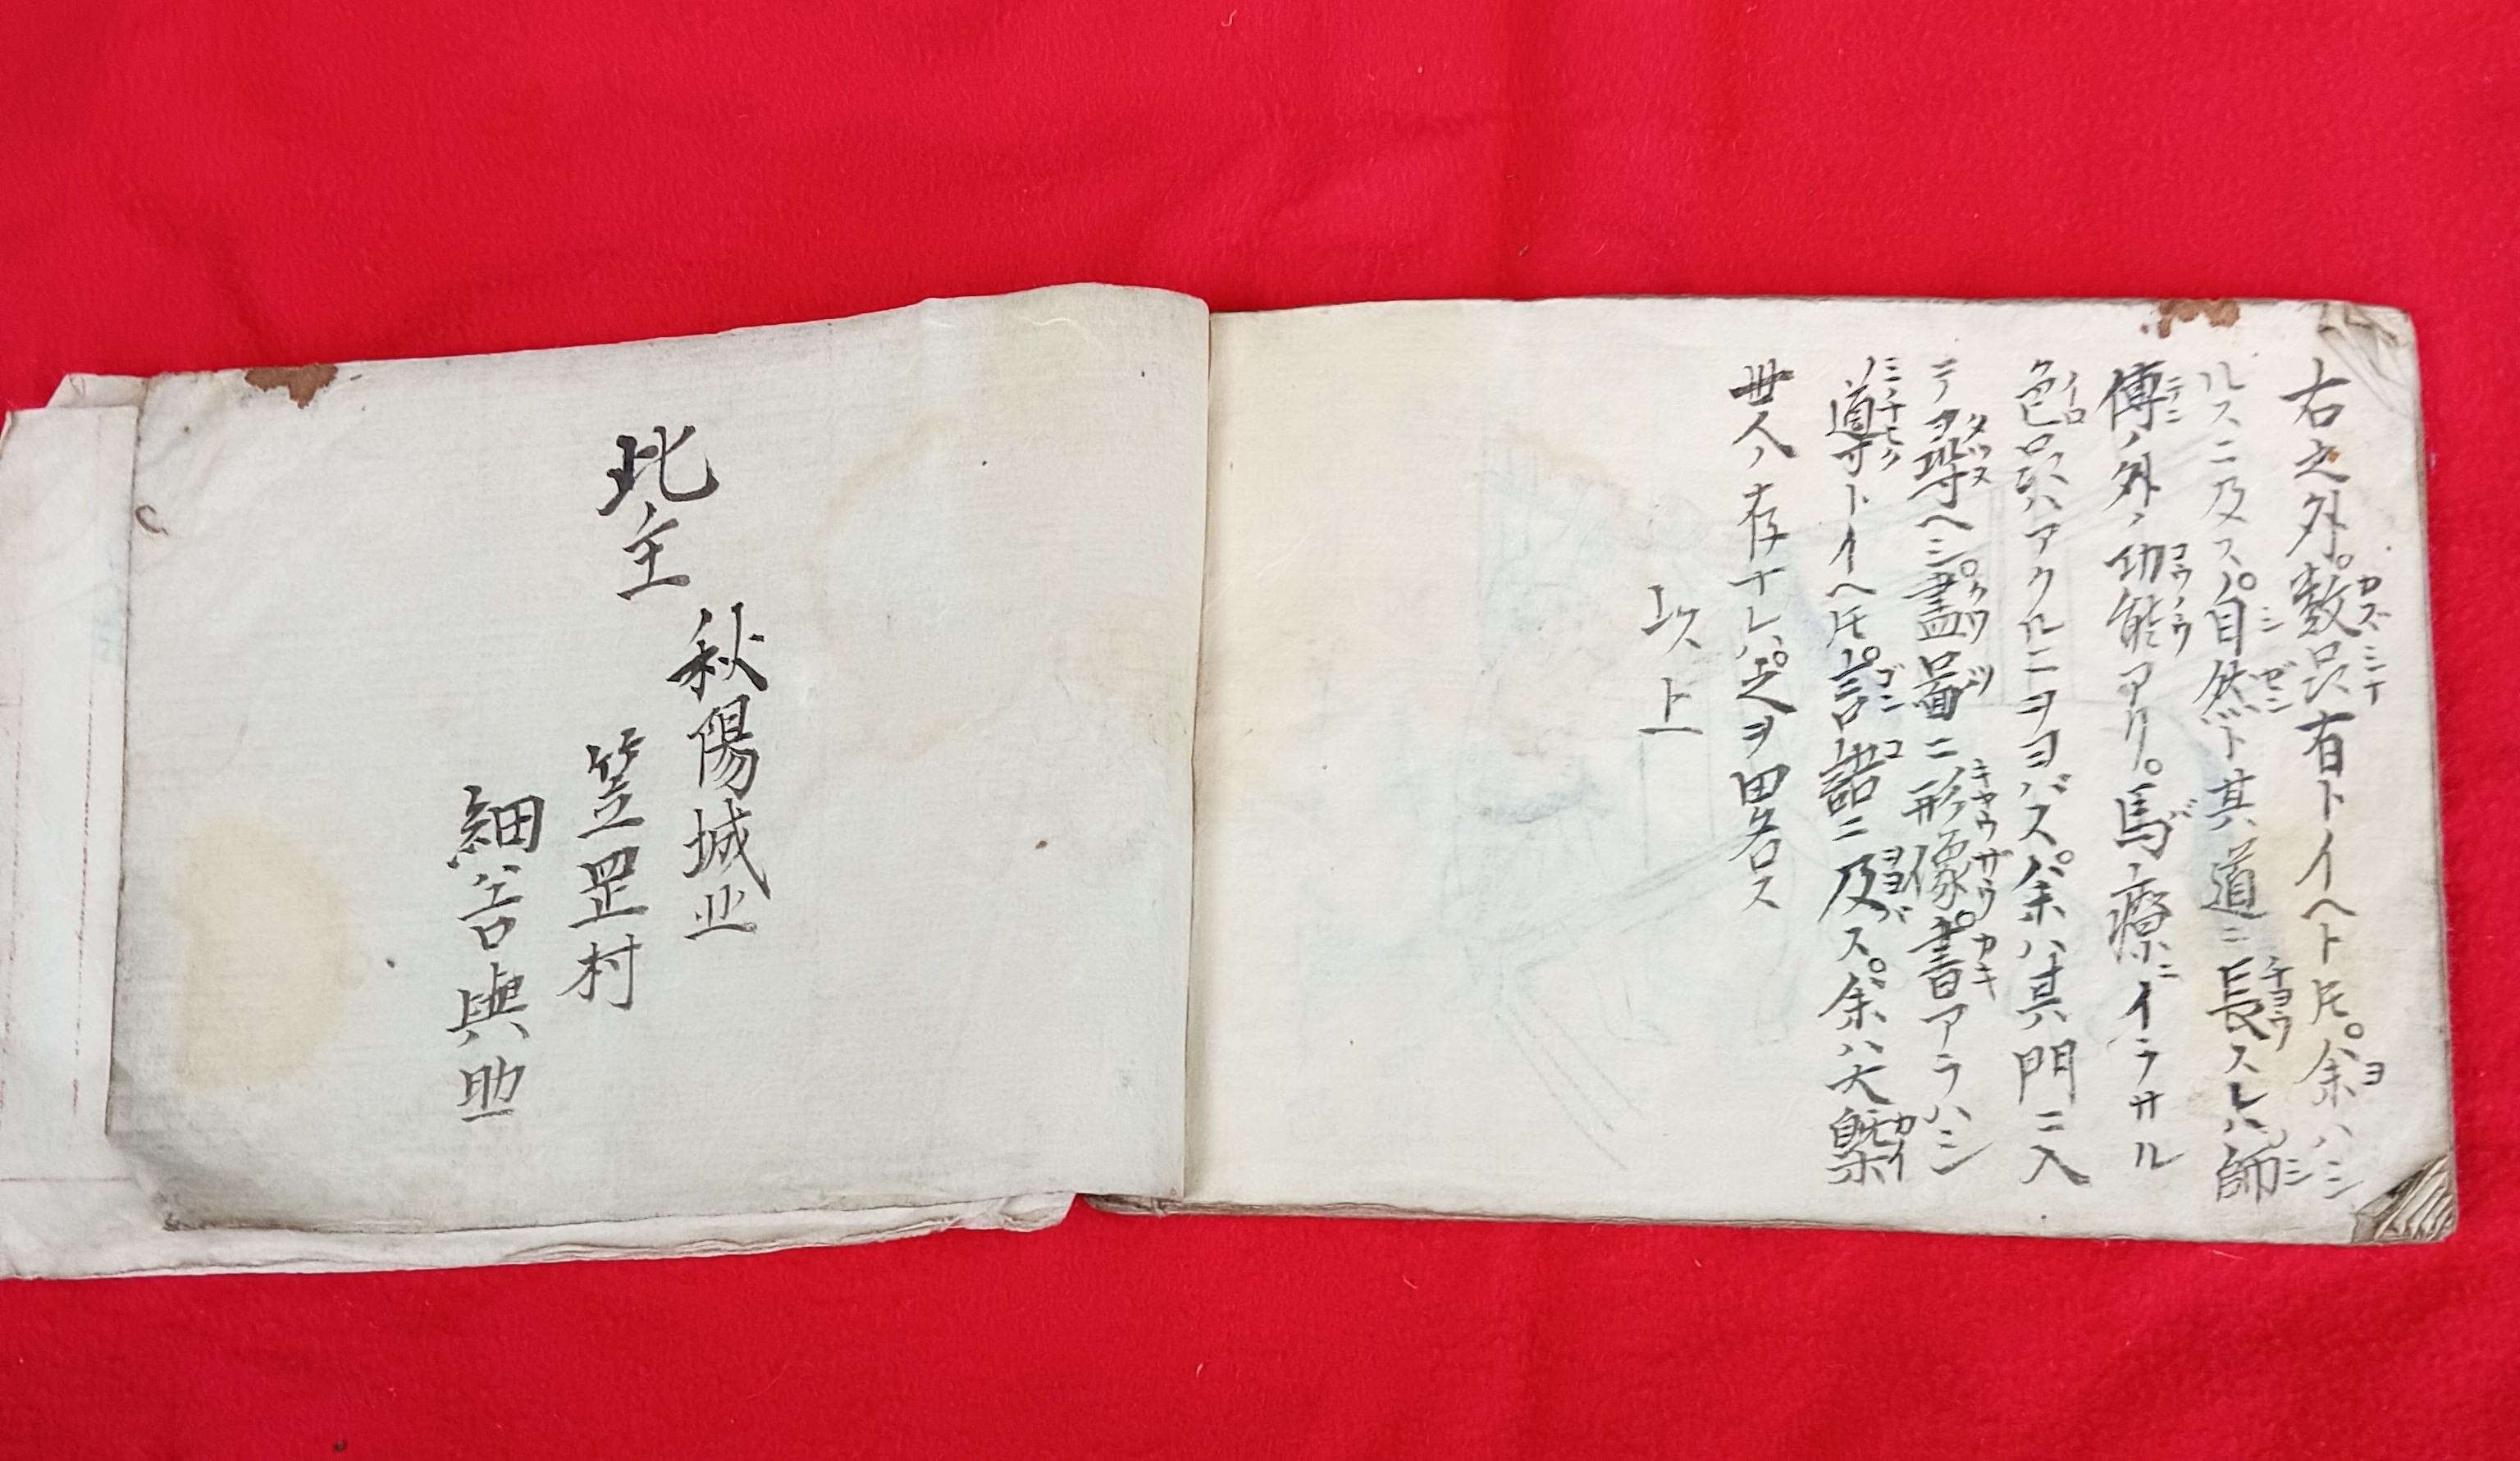 右之外。数品有トイヘト𪜈。余ハシ
ルスニ及ス。自然ト其道ニ長スレハ師
傳ノ外ノ功能アリ。馬ノ療ニイラサル
色品ハアクルニヲヨバス。余ハ其門ニ入
テヲ尋ヘシ。畫圖ニ形像。書アラハシ
導トイヘ𪜈。言語ニ及ス。余ハ大槩
世人ノ存ナレハ。之ヲ畧ス
以上
此主
秋陽城北
笠置村
細谷與助